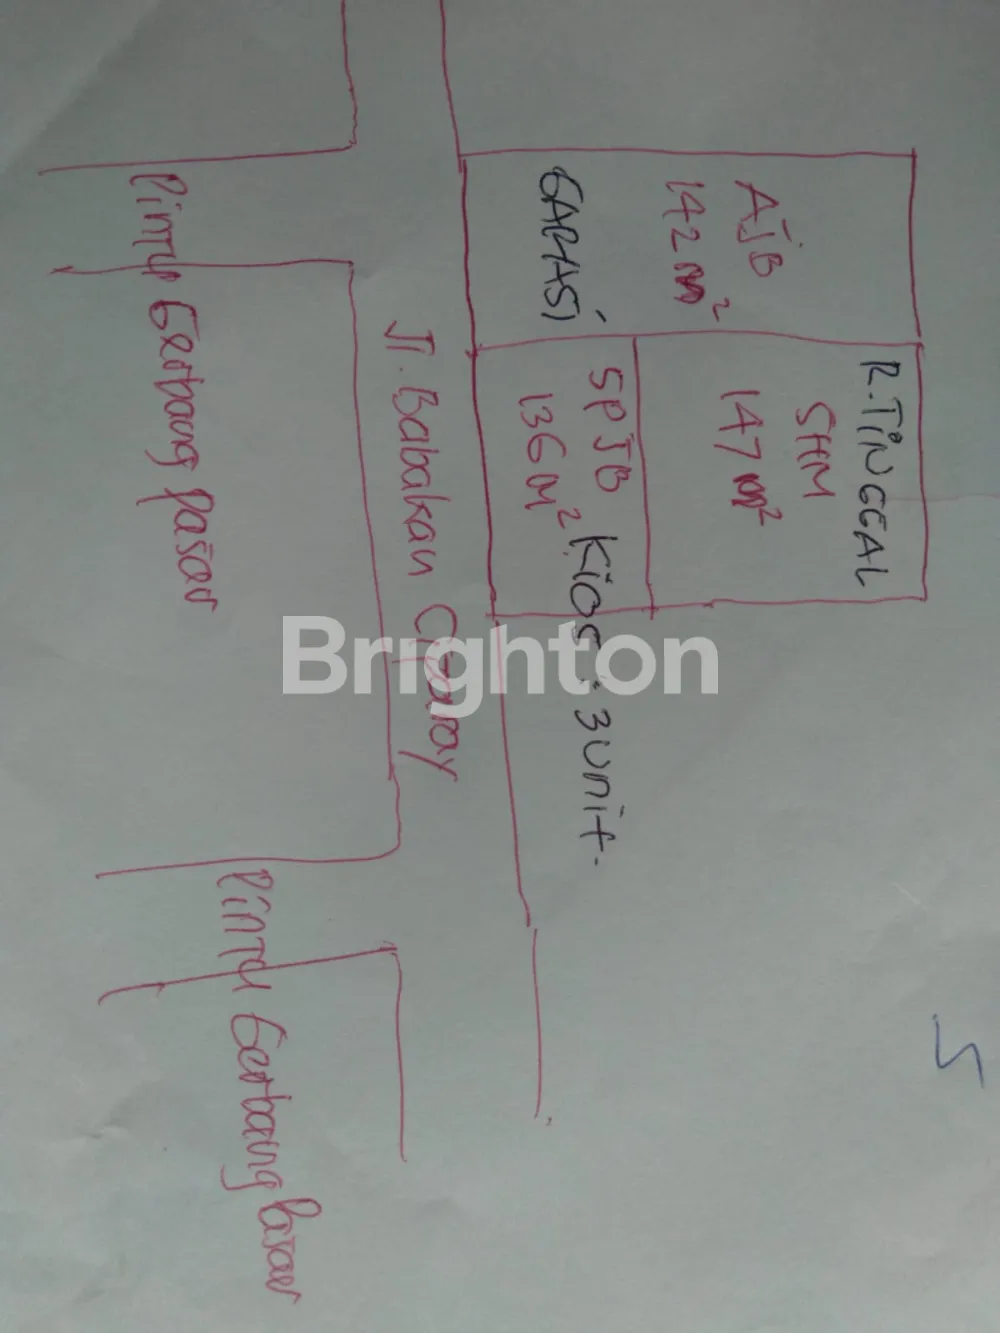 R.TINGGAL
SHM
147 m²
AJB
142 m²
GARASI
SPJB
136 m²
Kios : 3 unit.
Jl. Babakan Ciparay
Pintu Gerbang pasar
Pintu Gerbang pasar
5
Brighton